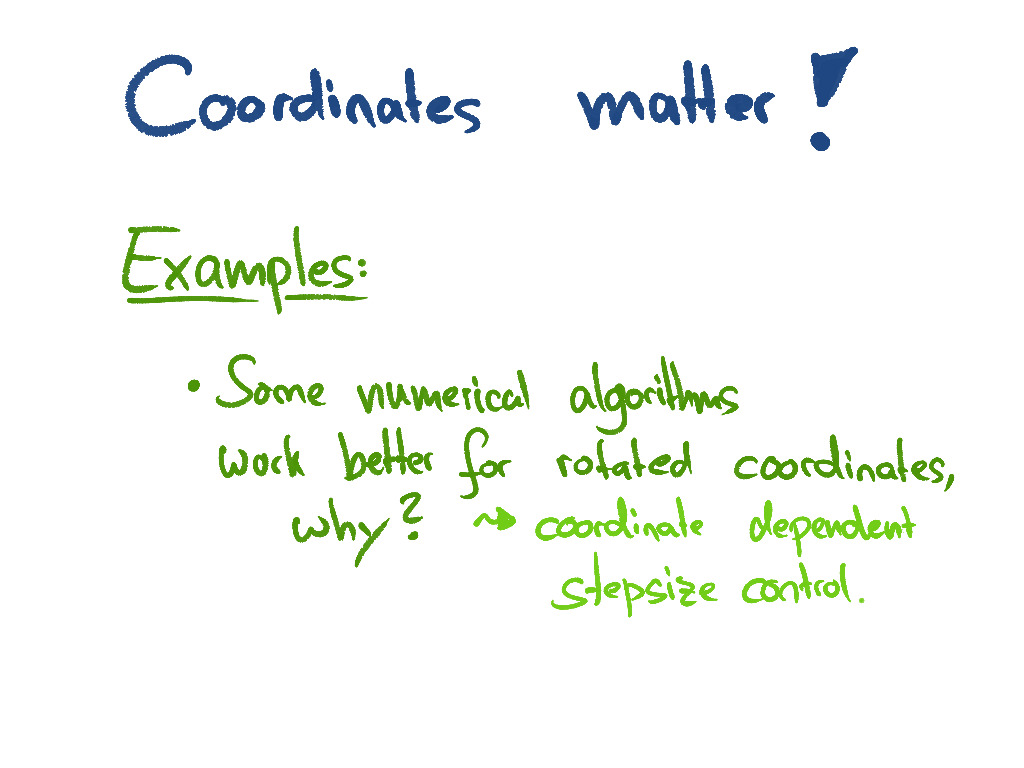 Coordinates matter!
Examples:
• Some numerical algorithms
work better for rotated coordinates,
why? ⇝ coordinate dependent
stepsize control.